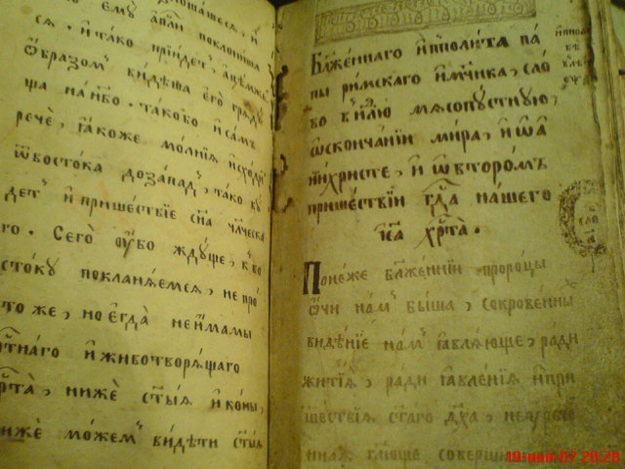 поклониша
сѧ. и тако прїидетъ,
ѻбразомъ видѣша єго̀ грѧдꙋ
ща на нбо. таково и самъ
речѐ, ꙗкоже молнїѧ исходи
ѿ востока до западъ, тако бꙋ
детъ и пришествїе сн҃а чл҃ческа
го. Сего̀ ᲂу҆бо ждꙋще, къ во
стокꙋ покланѧемсѧ, не про
то же, но єгда̀ не имамы
и животворѧщаго
крⷭ҇та̀, нижѐ ст҃ыѧ иконы,
ниже можемъ видѣти ст҃ыѧ
Блаженнаго ипполита па
пы римскаго и мч҃нка, сло
во в нлю мѧсопꙋстнꙋю,
ѡ скончанїи мира, и ѡ а
нтихристе, и ѡ второмъ
пришествїи гдⷭ҇а нашего
іс҃а хрⷭ҇та̀.
Понеже блаженнїи пророцы
ѻчи намъ быша, сокровенны
видѣнїе намъ ꙗвлѧюще, ради
житїѧ, ради ꙗвленїѧ и при
шествїѧ ст҃аго дх҃а,
гл҃юще
10 май 07 20:20